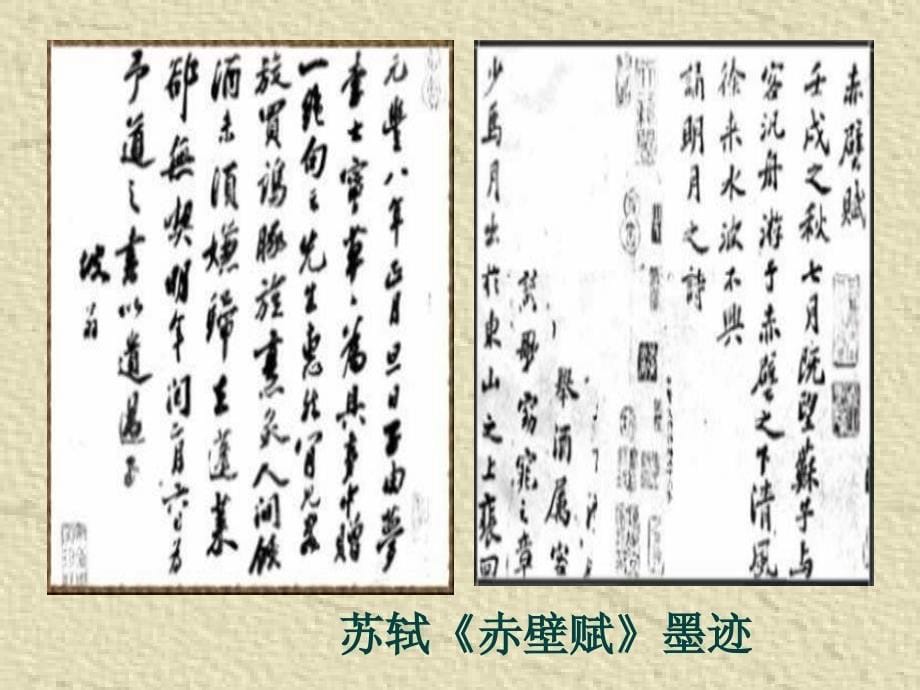 赤壁賦
壬戌之秋七月既望蘇子与
客汎舟游于赤壁之下清風
徐来水波不興
舉酒属客
誦明月之詩
窈窕之章
少焉月出於東山之上裵回
元豐八年正月旦日子由夢
李士寧草草為具夢中贈
一絶句云先生惠然肯見客
旋買鷄豚旋烹炙人間飲
酒未須嫌歸去蓬莱
卻無喫明年閏二月六日為
予道之書以遺過子
坡翁
苏轼《赤壁赋》墨迹